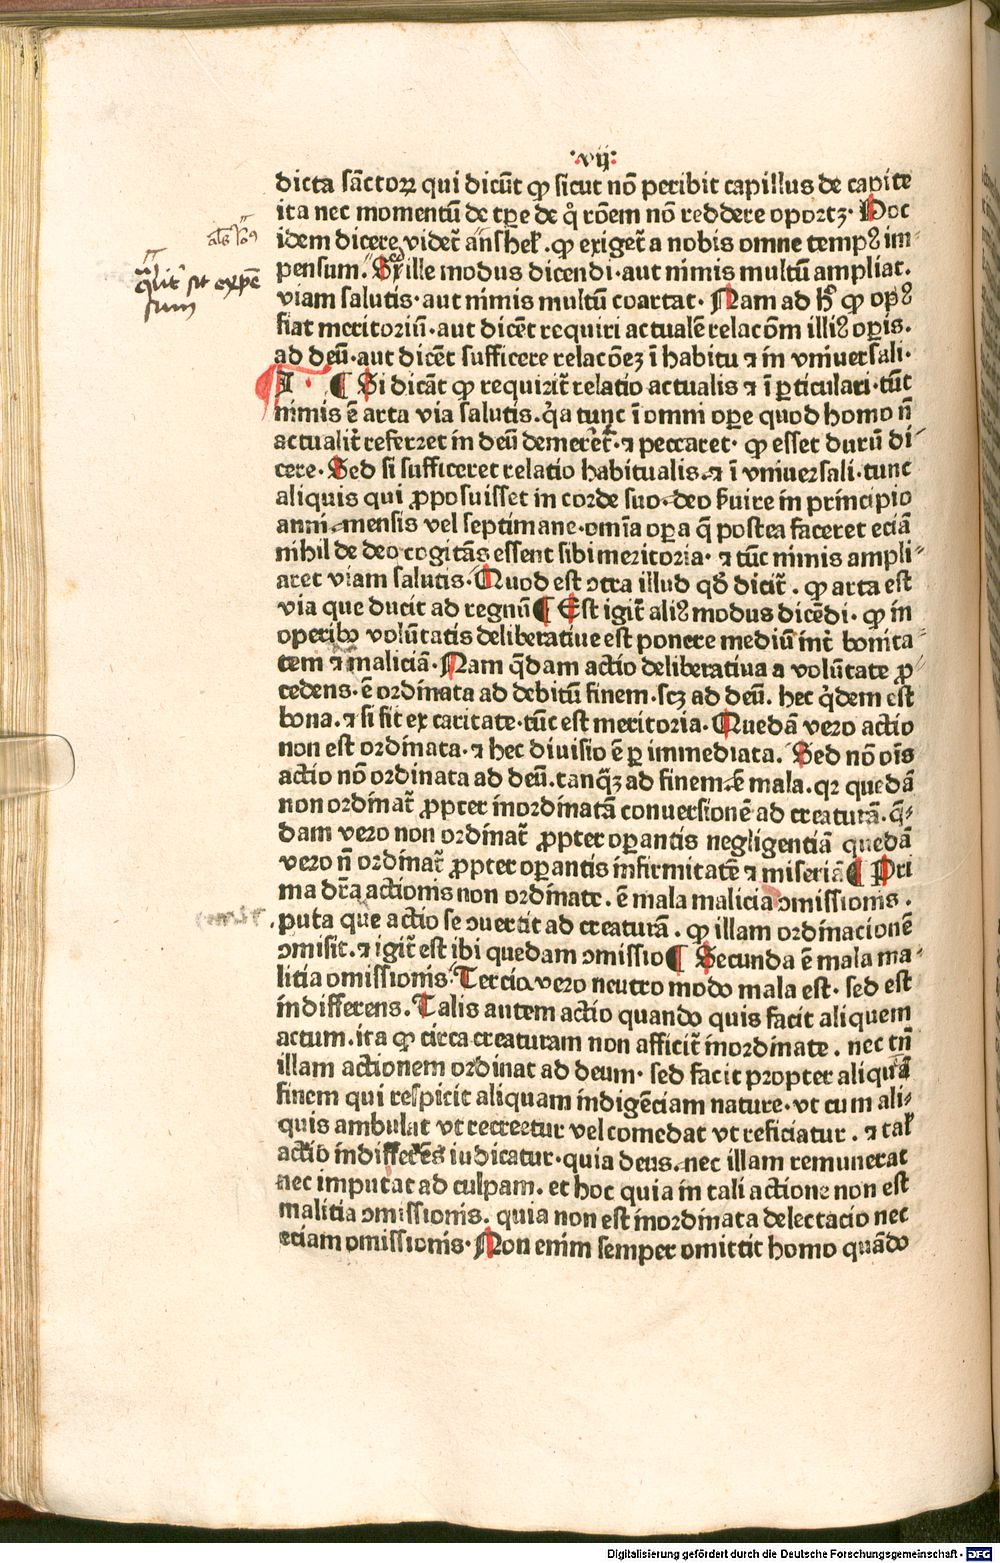 ·vij·
dicta sāctoꝝ qui dicūt ꝙ sicut nō peribit capillus de capite
ita nec momentū de tꝑe de q̊ rōem nō reddere oportꝫ· Hoc
idem dicere videt᷑ anshel̵. ꝙ exiget᷑ a nobis omne tempꝰ im
pensum. Sꝫ ille modus dicendi· aut nimis multū ampliat.
viam salutis· aut nimis multū coartat· Nam ad hͦ ꝙ opꝰ
fiat meritoriū· aut dicēt requiri actualē relacōm illiꝰ oꝑis.
ad deū· aut dicēt sufficere relacōeꝫ ī habitu ⁊ in vniuersali·
I · ¶ Si dicāt ꝙ requirit᷑ relatio actualis ⁊ ī ꝑticulari· tūc
nimis ē arta via salutis· q̇a tunc ī omni oꝑe quod homo n̄
actualit᷑ referret in deū demereret᷑· ⁊ peccaret· ꝙ esset durū di
cere· Sed si sufficeret relatio habitualis· ⁊ ī vniuersali· tunc
aliquis qui ꝓposuisset in corde suo deo ẜuire in principio
anni mensis vel septimane· om̄ia oꝑa q̄ postea faceret eciā
nihil de deo cogitās essent sibi meritoria· ⁊ tūc nimis ampli-
aret viam salutis· Quod est ↄtra illud qđ dicit᷑. ꝙ arta est
via que ducit ad regnū ¶ Est igit᷑ aliꝰ modus dicēdi· ꝙ in
operibꝰ volūtatis deliberatiue est ponere mediū int᷑ bonita-
tem ⁊ maliciā· Nam q̄dam actio deliberatiua a volūtate ꝓ-
cedens· ē ordinata ad debitū finem· scꝫ ad deū. hec q̇dem est
bona. ⁊ si fit ex caritate· tūc est meritoria. Quedā vero actio
non est ordinata· ⁊ hec diuisio ē ꝑ immediata. Sed nō oīs
actio nō ordinata ad deū. tanq̄ꝫ ad finem ē mala. qꝛ quedā
non ordinat᷑ ꝓpter inordinatā conuersionē ad creaturā. q̄-
dam vero non ordinat᷑ ꝓpter oꝑantis negligentiā quedā
vero n̄ ordinat᷑ ꝓpter oꝑantis infirmitatē ⁊ miseriā ¶ Pri
ma dr̄a actionis non ordinate. ē mala malicia ↄmissionis.
puta que actio se ↄuertit ad creaturā. ꝙ illam ordinacionē
ↄmisit. ⁊ igit᷑ est ibi quedam ↄmissio ¶ Secunda ē mala ma-
litia omissionis· Tercia vero neutro modo mala est· sed est
indifferens. Talis autem actio quando quis facit aliquem
actum. ita ꝙ circa creaturam non afficit᷑ inordinate. nec tn̄
illam actionem ordinat ad deum· sed facit propter aliquā
finem qui respicit aliquam indigēciam nature· vt cum ali-
quis ambulat vt recreetur vel comedat vt reficiatur. ⁊ tal̵
actio indifferēs iudicatur· quia deus nec illam remunerat
nec imputat ad culpam. et hoc quia in tali actione non est
malitia ↄmissionis. quia non est inordinata delectacio nec
eciam omissionis· Non enim semper omittit homo quādo
q̄lit᷑ sit expē
sum
Digitalisierung gefördert durch die Deutsche Forschungsgemeinschaft - DFG